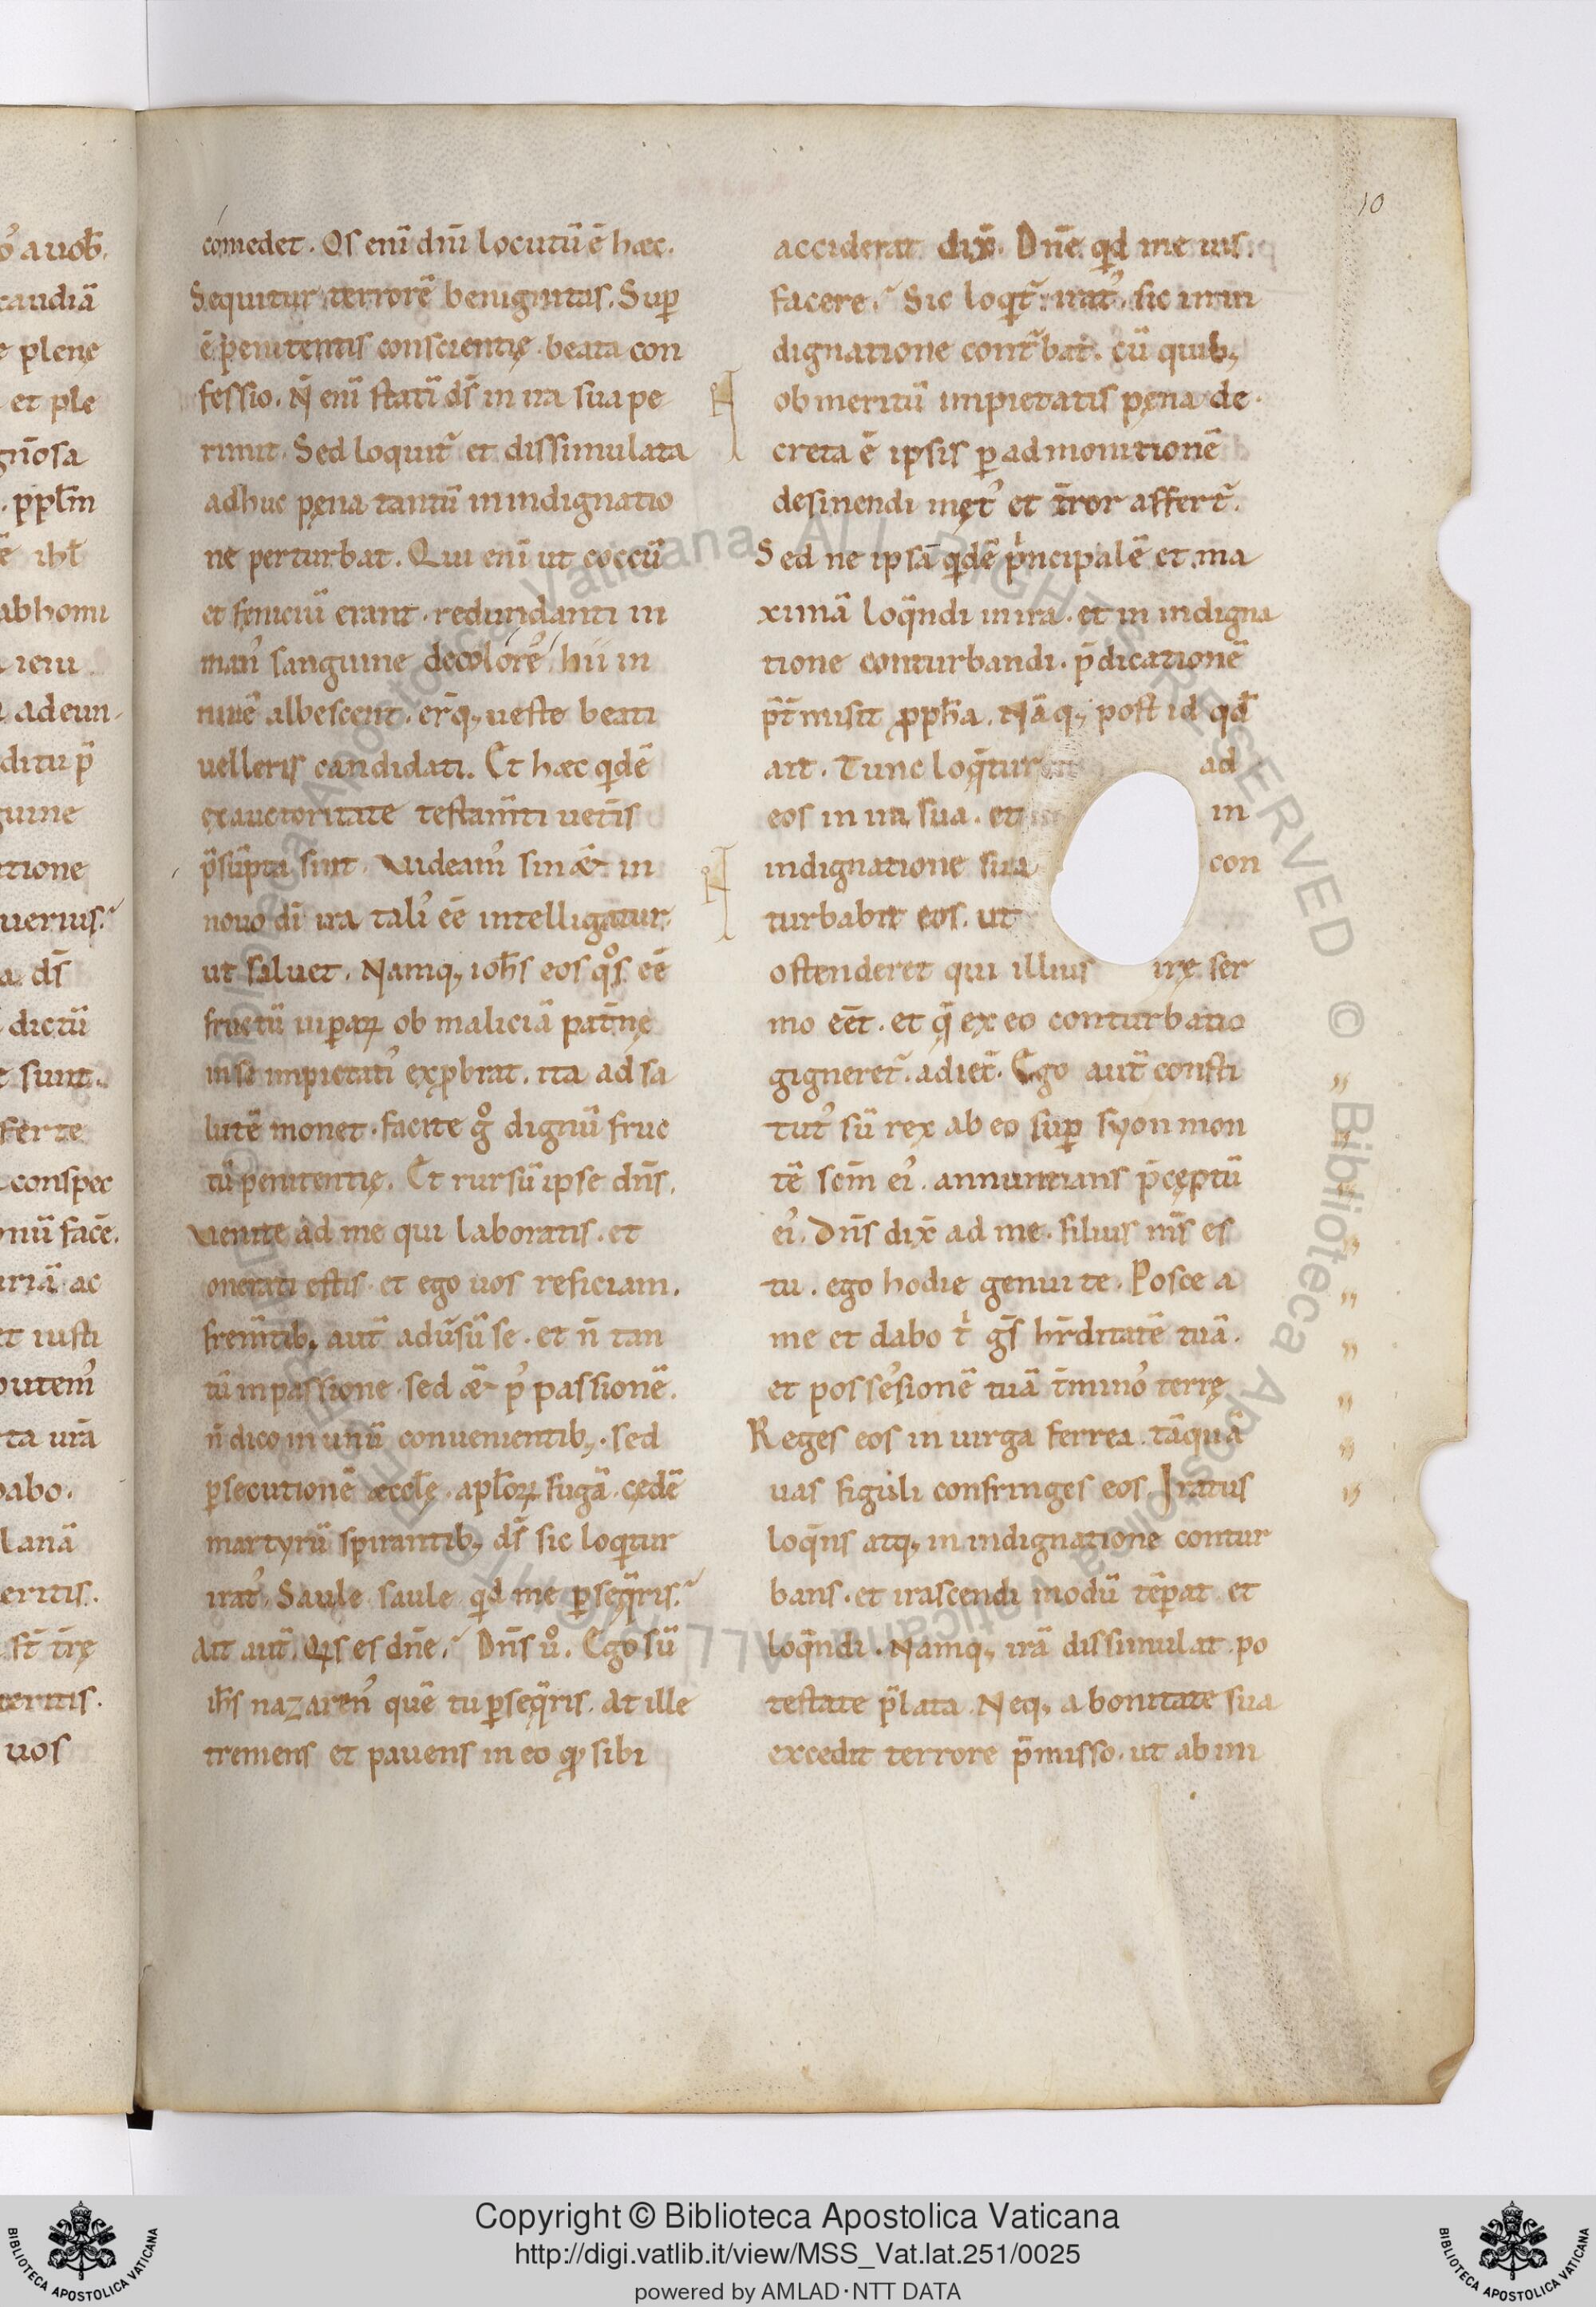 10
comedet. Os enī dnī locutū ē hæc.
Sequitur terrorē benignitas. Sup̄
ē penitentis conscientię. beata con
fessio. N̄ enī statī ds̄ in ira sua pe
rimit. Sed loquit̄ et dissimulata
adhuc pęna tantū in indignatio
ne perturbat. Qui enī ut coccū
et feniciū erant. redundanti in
man᾽ sanguine decolorē hii in
niuē albescent. er̄q; ueste beati
uelleris candidati. Et hæc qdē
ex auctoritate testam̄ti uet̄is
p̄sūpta sint. Videam᾽ sin & in
nouo dī ira tal᾽ eē intelligatur.
ut saluet. Namq; ioh̄s eos qos eē
fructū uiparꝝ ob maliciā pat̄nę
in se impietat᾽ exp̱brat. ita ad sa
lutē monet. facite gͦ dignū fruc
tū penitentię. Et rursū ipse dn̄s.
Venite ad me qui laboratis. et
onerati estis. et ego uos reficiam.
frem̄tib; aut̄ adūsū se. et n̄ tan
tū in passione. sed & p᾽ passionē.
n̄ dico in unū conuenientib;. sed
ꝑsecutionē æccl̄ę. apl̄oꝝ fugā. cędē
martyrū spirantib; ds̄ sic loqtur
irat᾽. Saule saule qd me ꝑseq̄ris?
Ait aut̄. Qis es dn̄e? Dn̄s uͦ. Ego sū
ih̄s nazaren᾽ quē tu ꝑseq̄ris. At ille
tremens et pauens in eo qꝫ sibi
acciderat dix̄. Dn̄e qd me uis
facere? Sic loqt̄ irat᾽. sic in in
dignatione cont̄bat. cū quib;
ob meritū impietatis pęna de
creta ē ipsis ꝑ admonitionē
desinendi met᾽ et t̄ror affert̄.
Sed ne ipsā qdē pncipalē et ma
ximā loq̄ndi in ira. et in indigna
tione conturbandi. p̄dicationē
p̄t̄misit ꝓph̄a. Nāq; post id qd̄
ait. Tunc loq̄tur ad
eos in ira sua. et in
indignatione sua con
turbabit eos. ut
ostenderet qui illius irę ser
mo eēt. et q̄ ex eo conturbatio
gigneret̄. adiec̄. Ego aut̄ consti
tut᾽ sū rex ab eo sup̄ syon mon
tē scm̄ ei᾽. annuntians p̄cęptū
ei᾽. Dn̄s dix̄ ad me. filius m̄s es
tu. ego hodie genui te. Posce a
me et dabo t gs̄ hr̄ditatē tuā.
et possesionē tuā t̄mino᾽ terrę
Reges eos in uirga ferrea. tāquā
uas figuli confringes eos. Iratus
loq̄ns atq; in indignatione contur
bans. et irascendi modū tēpat et
loq̄ndi. Namq; irā dissimulat po
testate p̄lata. Neq; a bonitate sua
excedit terrore p̄misso. ut ab im
Copyright © Biblioteca Apostolica Vaticana
http://digi.vatlib.it/view/MSS_Vat.lat.251/0025
powered by AMLAD·NTT DATA
BIBLIOTECA APOSTOLICA VATICANA
BIBLIOTECA APOSTOLICA VATICANA